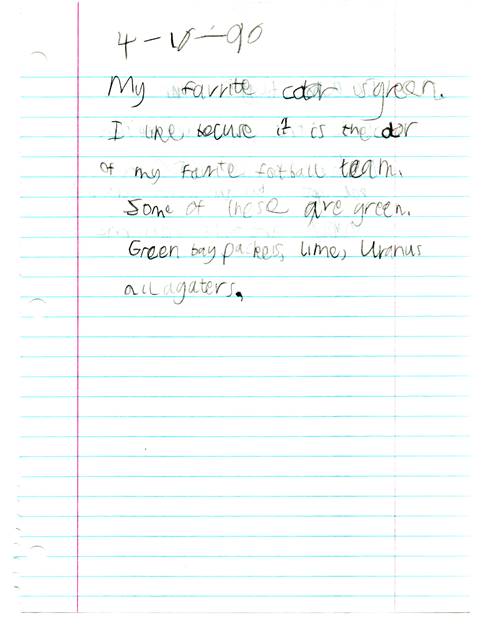 My favrite color is green.
I like becuse it is the color
of my farite football team.
Some of these are green.
Green bay packers, lime, Uranus
all agaters.